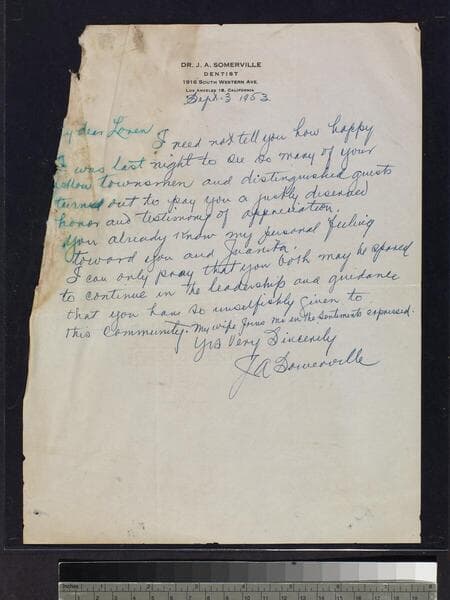 DR. J. A. SOMERVILLE
DENTIST
1916 SOUTH WESTERN AVE.
LOS ANGELES 18, CALIFORNIA
Sept. 3 1953
y dear Loren
I need not tell you how happy
I was last night to see so many of your
fellow townsmen and distinguished guests
turned out to pay you a justly deserved
honor and testimony of appreciation.
You already know my personal feeling
toward you and Juanita.
I can only pray that you both may be spared
to continue in the leadership and guidance
that you have so unselfishly given to
this Community. My wife joins me in the sentiments expressed.
Yrs Very Sincerely
J A Somerville
Inches